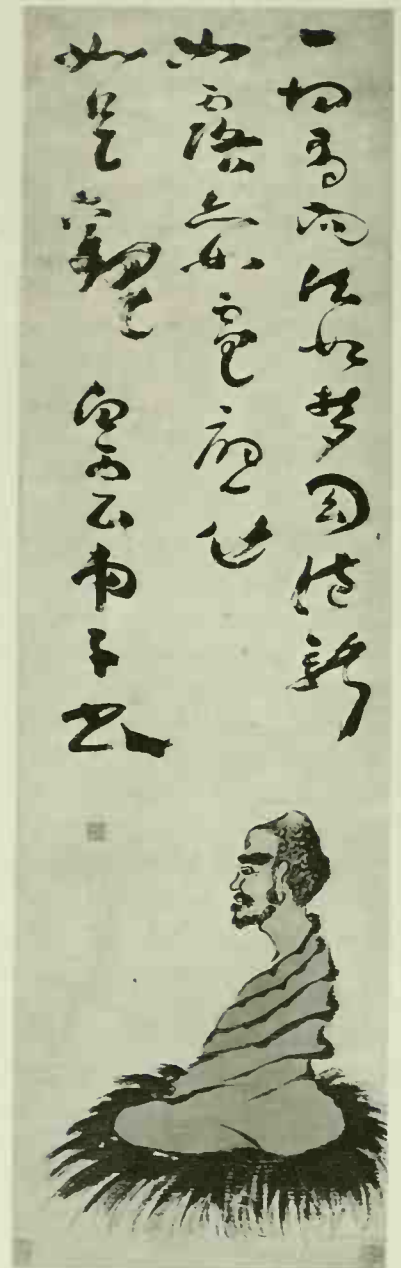 一切有為法如夢幻泡影
如露亦如電應作
如是觀 書